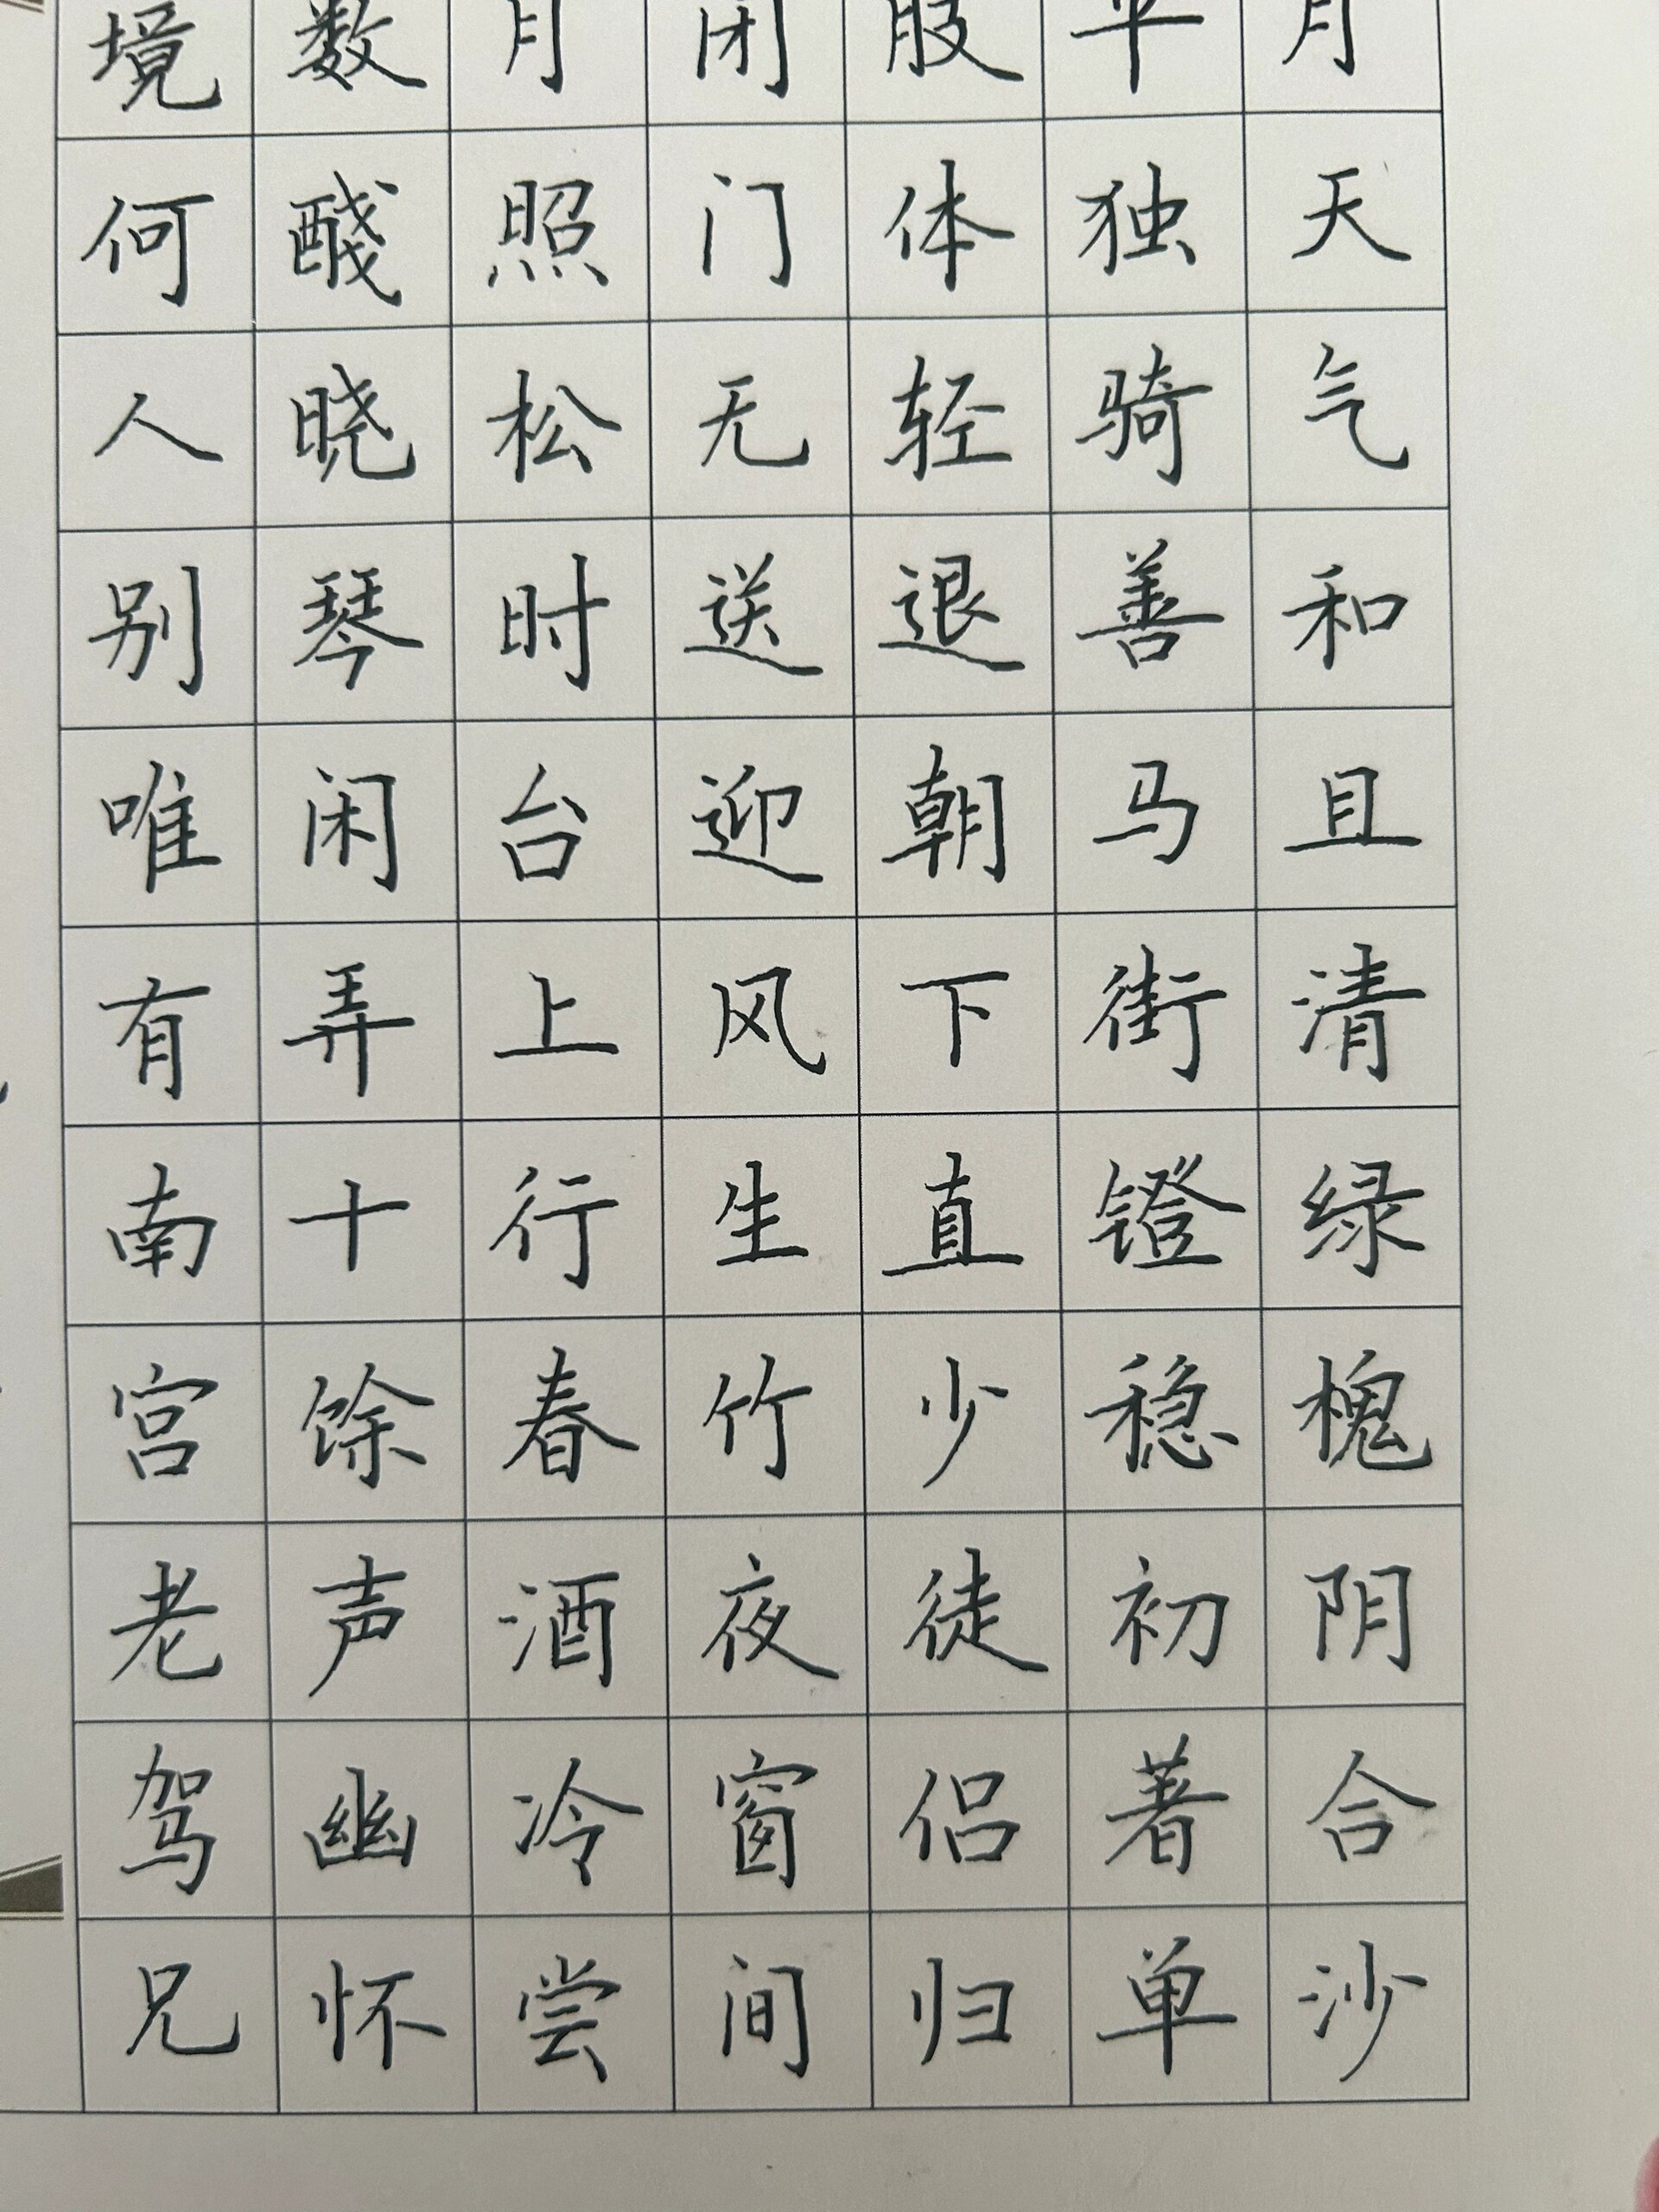 月天气和且清绿槐阴合沙
平独骑善马街镫稳初著单
肢体轻退朝下直少徒侣归
闭门无送迎风生竹夜窗间
月照松时台上行春酒冷尝
数醆晓琴闲弄十馀声幽怀
境何人别唯有南宫老驾兄